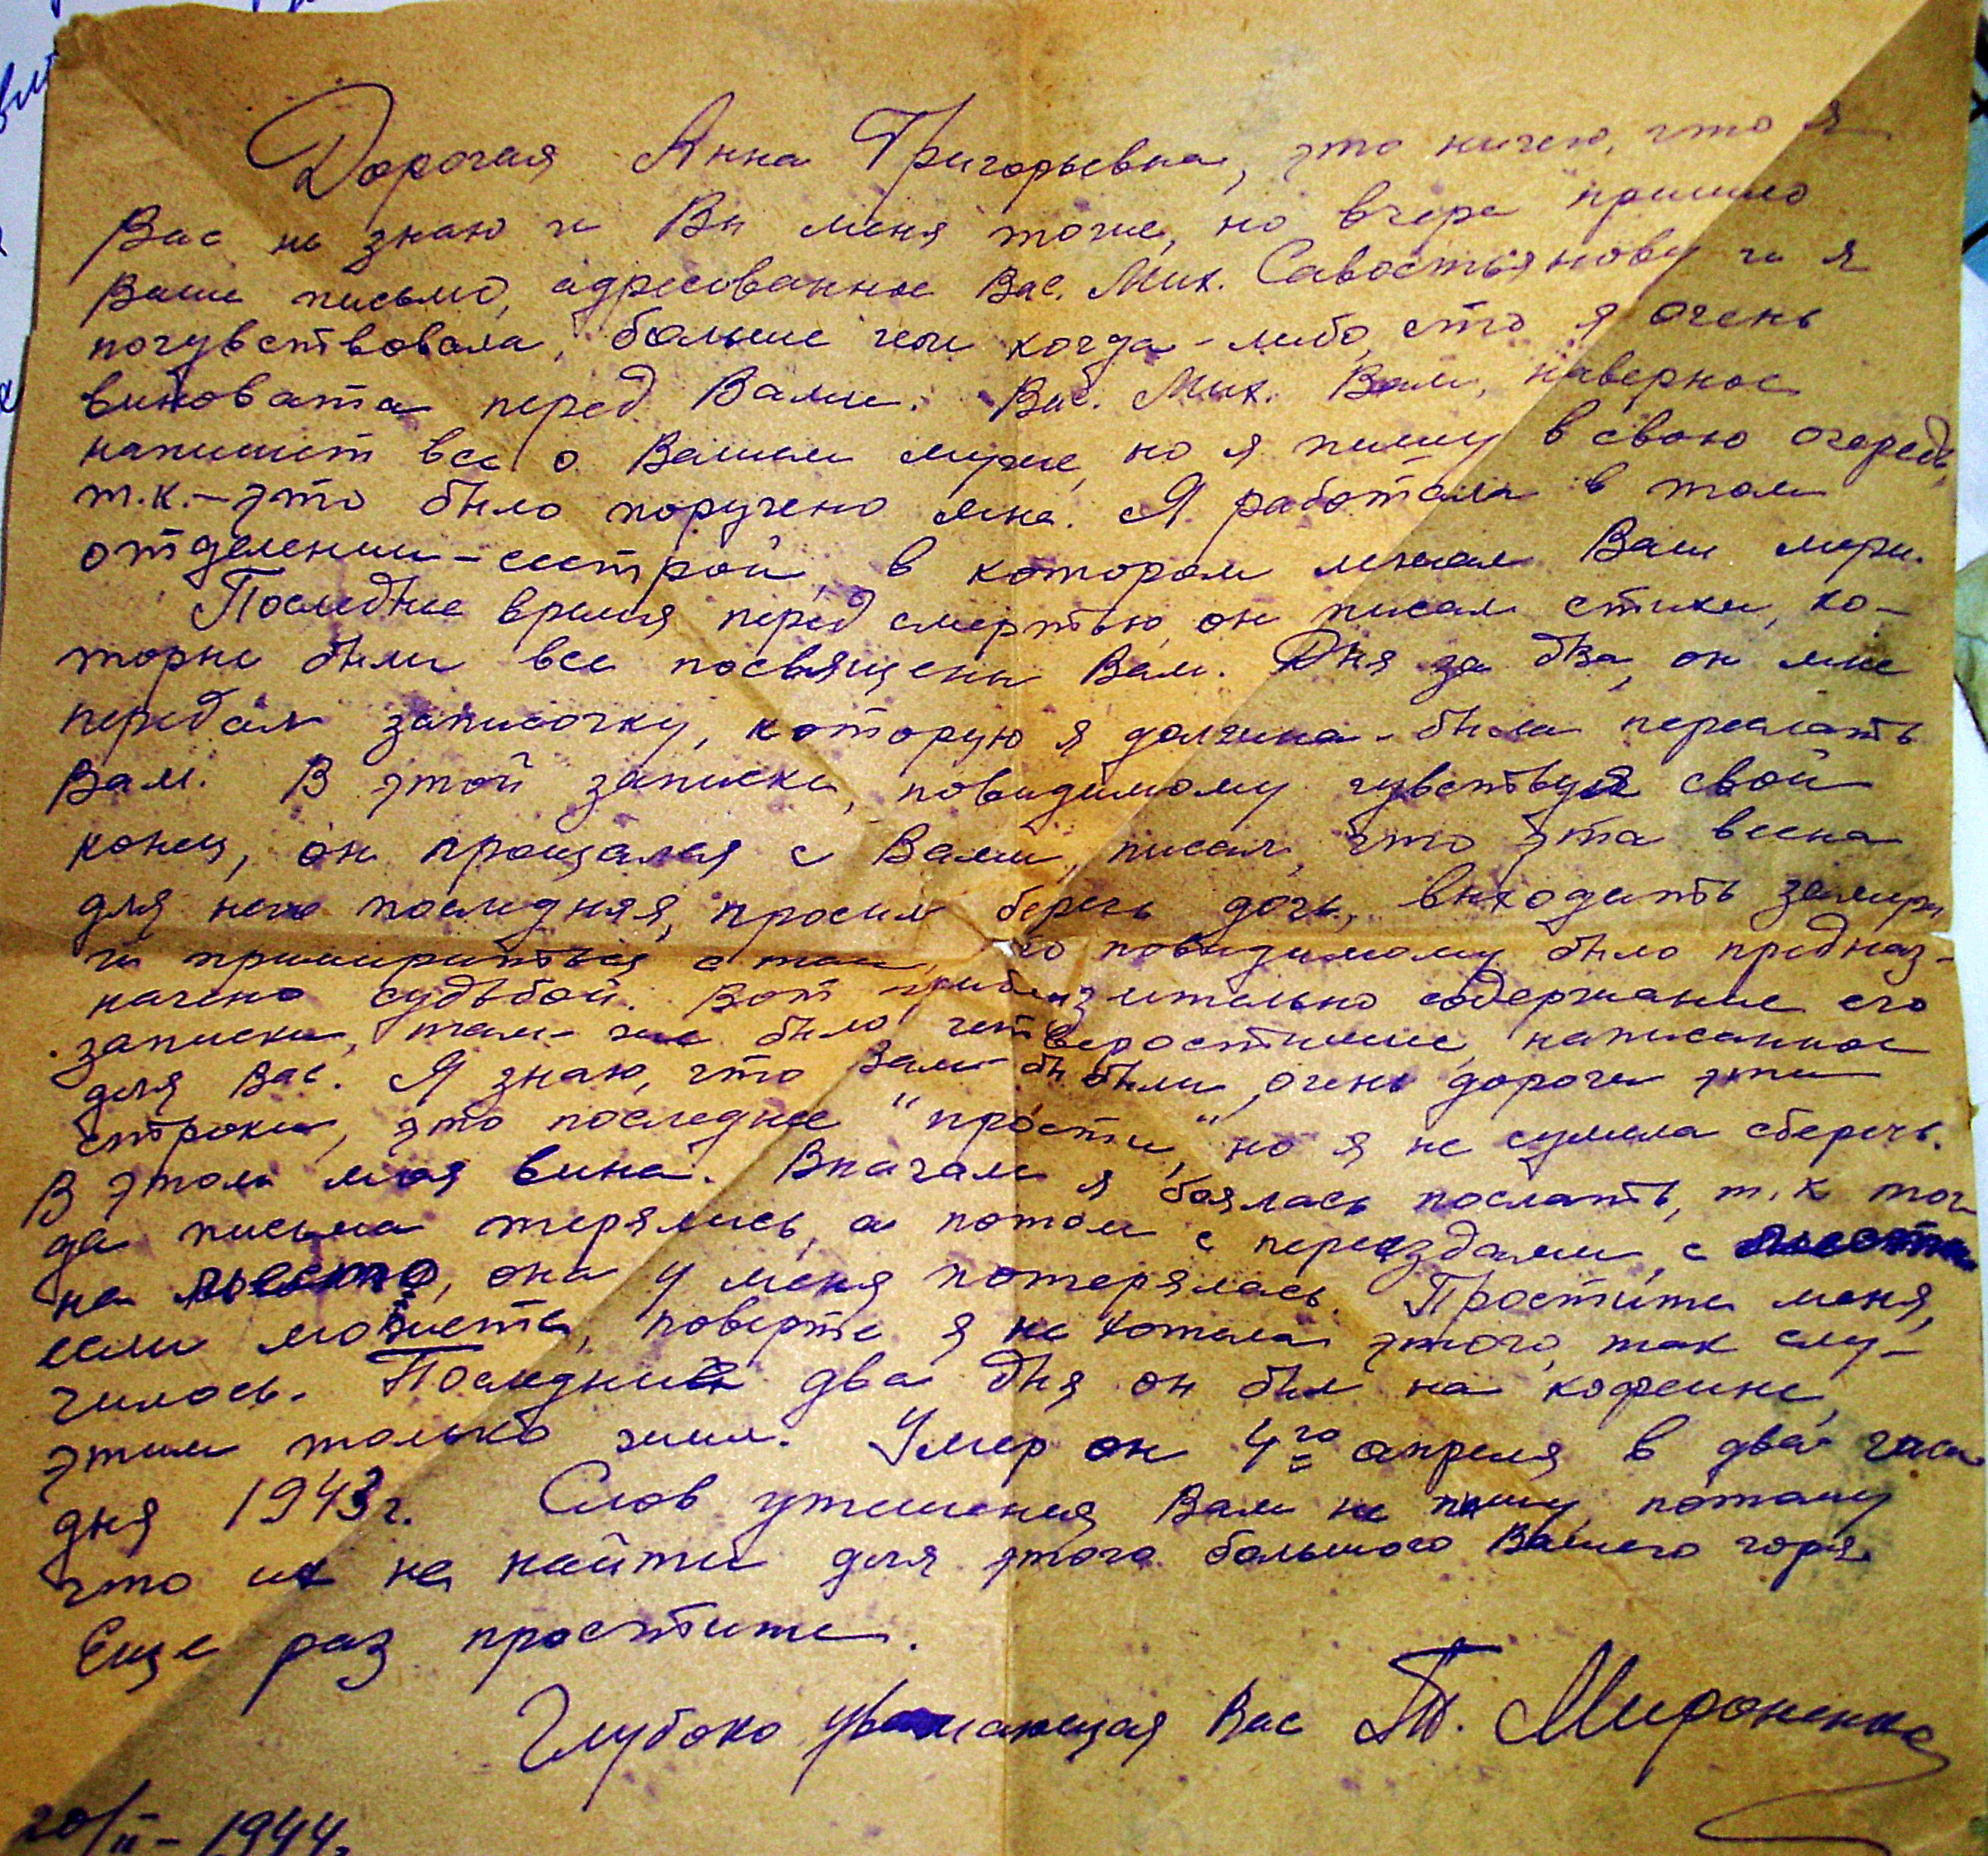 Дорогая Анна Григорьевна, это ничего, что я
Вас не знаю и Вы меня тоже, но вчера пришло
Ваше письмо, адресованное Вас. Мих. Савостьянову и я
почувствовала, больше чем когда-либо, что я очень
виновата перед Вами. Вас. Мих. Вам, наверное
напишет все о Вашем муже, но я пишу в свою очередь,
т.к. - это было поручено мне. Я работала в том
отделении - сестрой, в котором лежал Ваш муж.
Последнее время перед смертью, он писал стихи, ко-
торые были все посвящены Вам. Дня за два, он мне
передал записочку, которую я должна-была переслать
Вам. В этой записке, повидимому чувствуя свой
конец, он прощался с Вами, писал, что эта весна
для него последняя, просил беречь дочь, выходить замуж
и примириться с тем, повидимому было предназ-
начено судьбой. Вот приблизительно содержание его
записки, там-же было четверостишие, написанное
для Вас. Я знаю, что Вам бы были очень дороги эти
строки, это последнее "прости", но я не сумела сберечь.
В этом моя вина. Вначале я боялась послать, т.к тог
да письма терялись, а потом с переездами, с места
на место, она у меня потерялась. Простите меня,
если можете, поверьте я не хотела этого, так слу-
чилось. Последние два дня он был на кофеине,
этим только жил. Умер он 4го апреля в два часа
дня 1943г. Слов утешения Вам не пишу, потому
что их не найти для этого большого Вашего горя.
Еще раз простите.
Глубоко уважающая Вас Т. Мироненко
20/II-1944.